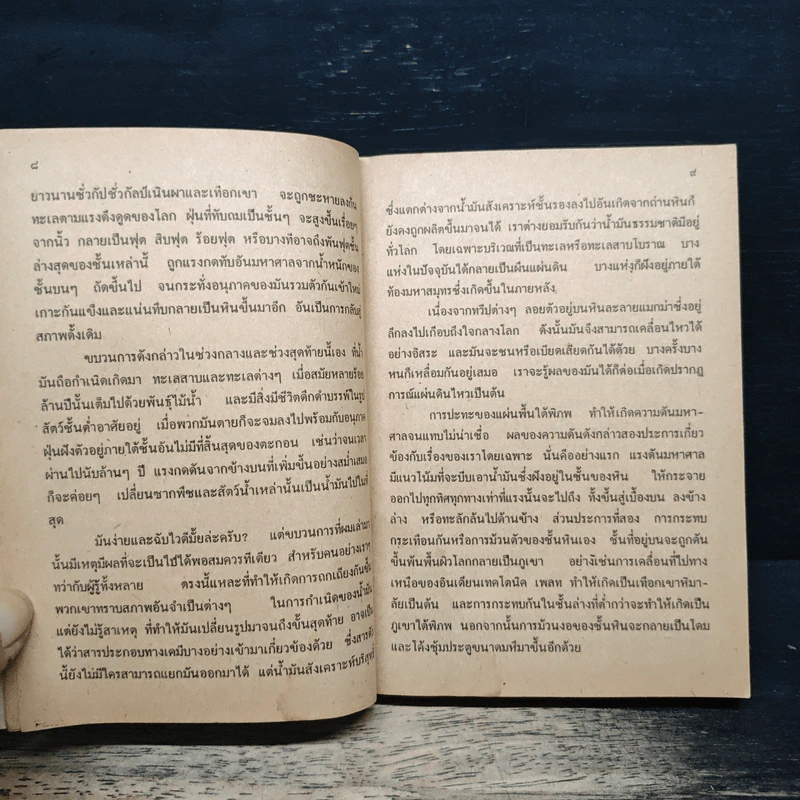 ๘
ยาวนานชั่วกัปชั่วกัลป์เนินผาและเทือกเขา จะถูกชะหายลงก้น
ทะเลตามแรงดึงดูดของโลก ฝุ่นที่ทับถมเป็นชั้นๆ จะสูงขึ้นเรื่อยๆ
จากนิ้ว กลายเป็นฟุต สิบฟุต ร้อยฟุต หรือบางทีอาจถึงพันฟุตชั้น
ล่างสุดของชั้นเหล่านี้ ถูกแรงกดทับอันมหาศาลจากน้ำหนักของ
ชั้นบนๆ ถัดขึ้นไป จนกระทั่งอนุภาคของมันรวมตัวกันเข้าใหม่
เกาะกันแข็งและแน่นทึบกลายเป็นหินขึ้นมาอีก อันเป็นการกลับสู่
สภาพดั้งเดิม
ขบวนการดังกล่าวในช่วงกลางและช่วงสุดท้ายนี้เอง ที่น้ำ
มันถือกำเนิดเกิดมา ทะเลสาบและทะเลต่างๆ เมื่อสมัยหลายร้อย
ล้านปีนั้นเต็มไปด้วยพันธุ์ไม้น้ำ และมีสิ่งมีชีวิตดึกดำบรรพ์ในรูป
สัตว์ชั้นต่ำอาศัยอยู่ เมื่อพวกมันตายก็จะจมลงไปพร้อมกับอนุภาค
ฝุ่นฝังตัวอยู่ภายใต้ชั้นอันไม่มีที่สิ้นสุดของตะกอน เช่นว่าจนเวลา
ผ่านไปนับล้านๆ ปี แรงกดดันจากข้างบนที่เพิ่มขึ้นอย่างสม่ำเสมอ
ก็จะค่อยๆ เปลี่ยนซากพืชและสัตว์น้ำเหล่านั้นเป็นน้ำมันไปในที่
สุด
มันง่ายและฉับไวดีมั้ยล่ะครับ? แต่ขบวนการที่ผมเล่ามา
นั้นมีเหตุมีผลที่จะเป็นไปได้พอสมควรทีเดียว สำหรับคนอย่างเราๆ
ทว่ากับผู้รู้ทั้งหลาย ตรงนี้แหละที่ทำให้เกิดการถกเถียงกันขึ้น
พวกเขาทราบสภาพอันจำเป็นต่างๆ ในการกำเนิดของน้ำมัน
แต่ยังไม่รู้สาเหตุ ที่ทำให้มันเปลี่ยนรูปมาจนถึงขั้นสุดท้าย อาจเป็น
ได้ว่าสารประกอบทางเคมีบางอย่างเข้ามาเกี่ยวข้องด้วย ซึ่งสารตัว
นี้ยังไม่มีใครสามารถแยกมันออกมาได้ แต่น้ำมันสังเคราะห์บริสุทธิ์
๙
ซึ่งแตกต่างจากน้ำมันสังเคราะห์ชั้นรองลงไปอันเกิดจากถ่านหินก็
ยังคงถูกผลิตขึ้นมาจนได้ เราต่างยอมรับกันว่าน้ำมันธรรมชาติมีอยู่
ทั่วโลก โดยเฉพาะบริเวณที่เป็นทะเลหรือทะเลสาบโบราณ บาง
แห่งในปัจจุบันได้กลายเป็นผืนแผ่นดิน บางแห่งก็ฝังอยู่ภายใต้
ท้องมหาสมุทรซึ่งเกิดขึ้นในภายหลัง
เนื่องจากทวีปต่างๆ ลอยตัวอยู่บนหินละลายแมกม่าซึ่งอยู่
ลึกลงไปเกือบถึงใจกลางโลก ดังนั้นมันจึงสามารถเคลื่อนไหวได้
อย่างอิสระ และมันจะชนหรือเบียดเสียดกันได้ด้วย บางครั้งบาง
หนก็เหลื่อมกันอยู่เสมอ เราจะรู้ผลของมันได้ก็ต่อเมื่อเกิดปรากฏ
การณ์แผ่นดินไหวเป็นต้น
การปะทะของแผ่นพื้นใต้พิภพ ทำให้เกิดความดันมหา-
ศาลจนแทบไม่น่าเชื่อ ผลของความดันดังกล่าวสองประการเกี่ยว
ข้องกับเรื่องของเราโดยเฉพาะ นั่นคืออย่างแรก แรงดันมหาศาล
มีแนวโน้มที่จะบีบเอาน้ำมันซึ่งฝังอยู่ในชั้นของหิน ให้กระจาย
ออกไปทุกทิศทุกทางเท่าที่แรงนั้นจะไปถึง ทั้งขึ้นสู่เบื้องบน ลงข้าง
ล่าง หรือทะลักล้นไปด้านข้าง ส่วนประการที่สอง การกระทบ
กระเทือนกันหรือการม้วนตัวของชั้นหินเอง ชั้นที่อยู่บนจะถูกดัน
ขึ้นพ้นพื้นผิวโลกกลายเป็นภูเขา อย่างเช่นการเคลื่อนที่ไปทาง
เหนือของอินเดียนเทคโตนิค เพลท ทำให้เกิดเป็นเทือกเขาหิมา-
ลัยเป็นต้น และการกระทบกันในชั้นล่างที่ต่ำกว่าจะทำให้เกิดเป็น
ภูเขาใต้พิภพ นอกจากนั้นการม้วนงอของชั้นหินจะกลายเป็นโดม
และโค้งซุ้มประตูขนาดมหึมาขึ้นอีกด้วย